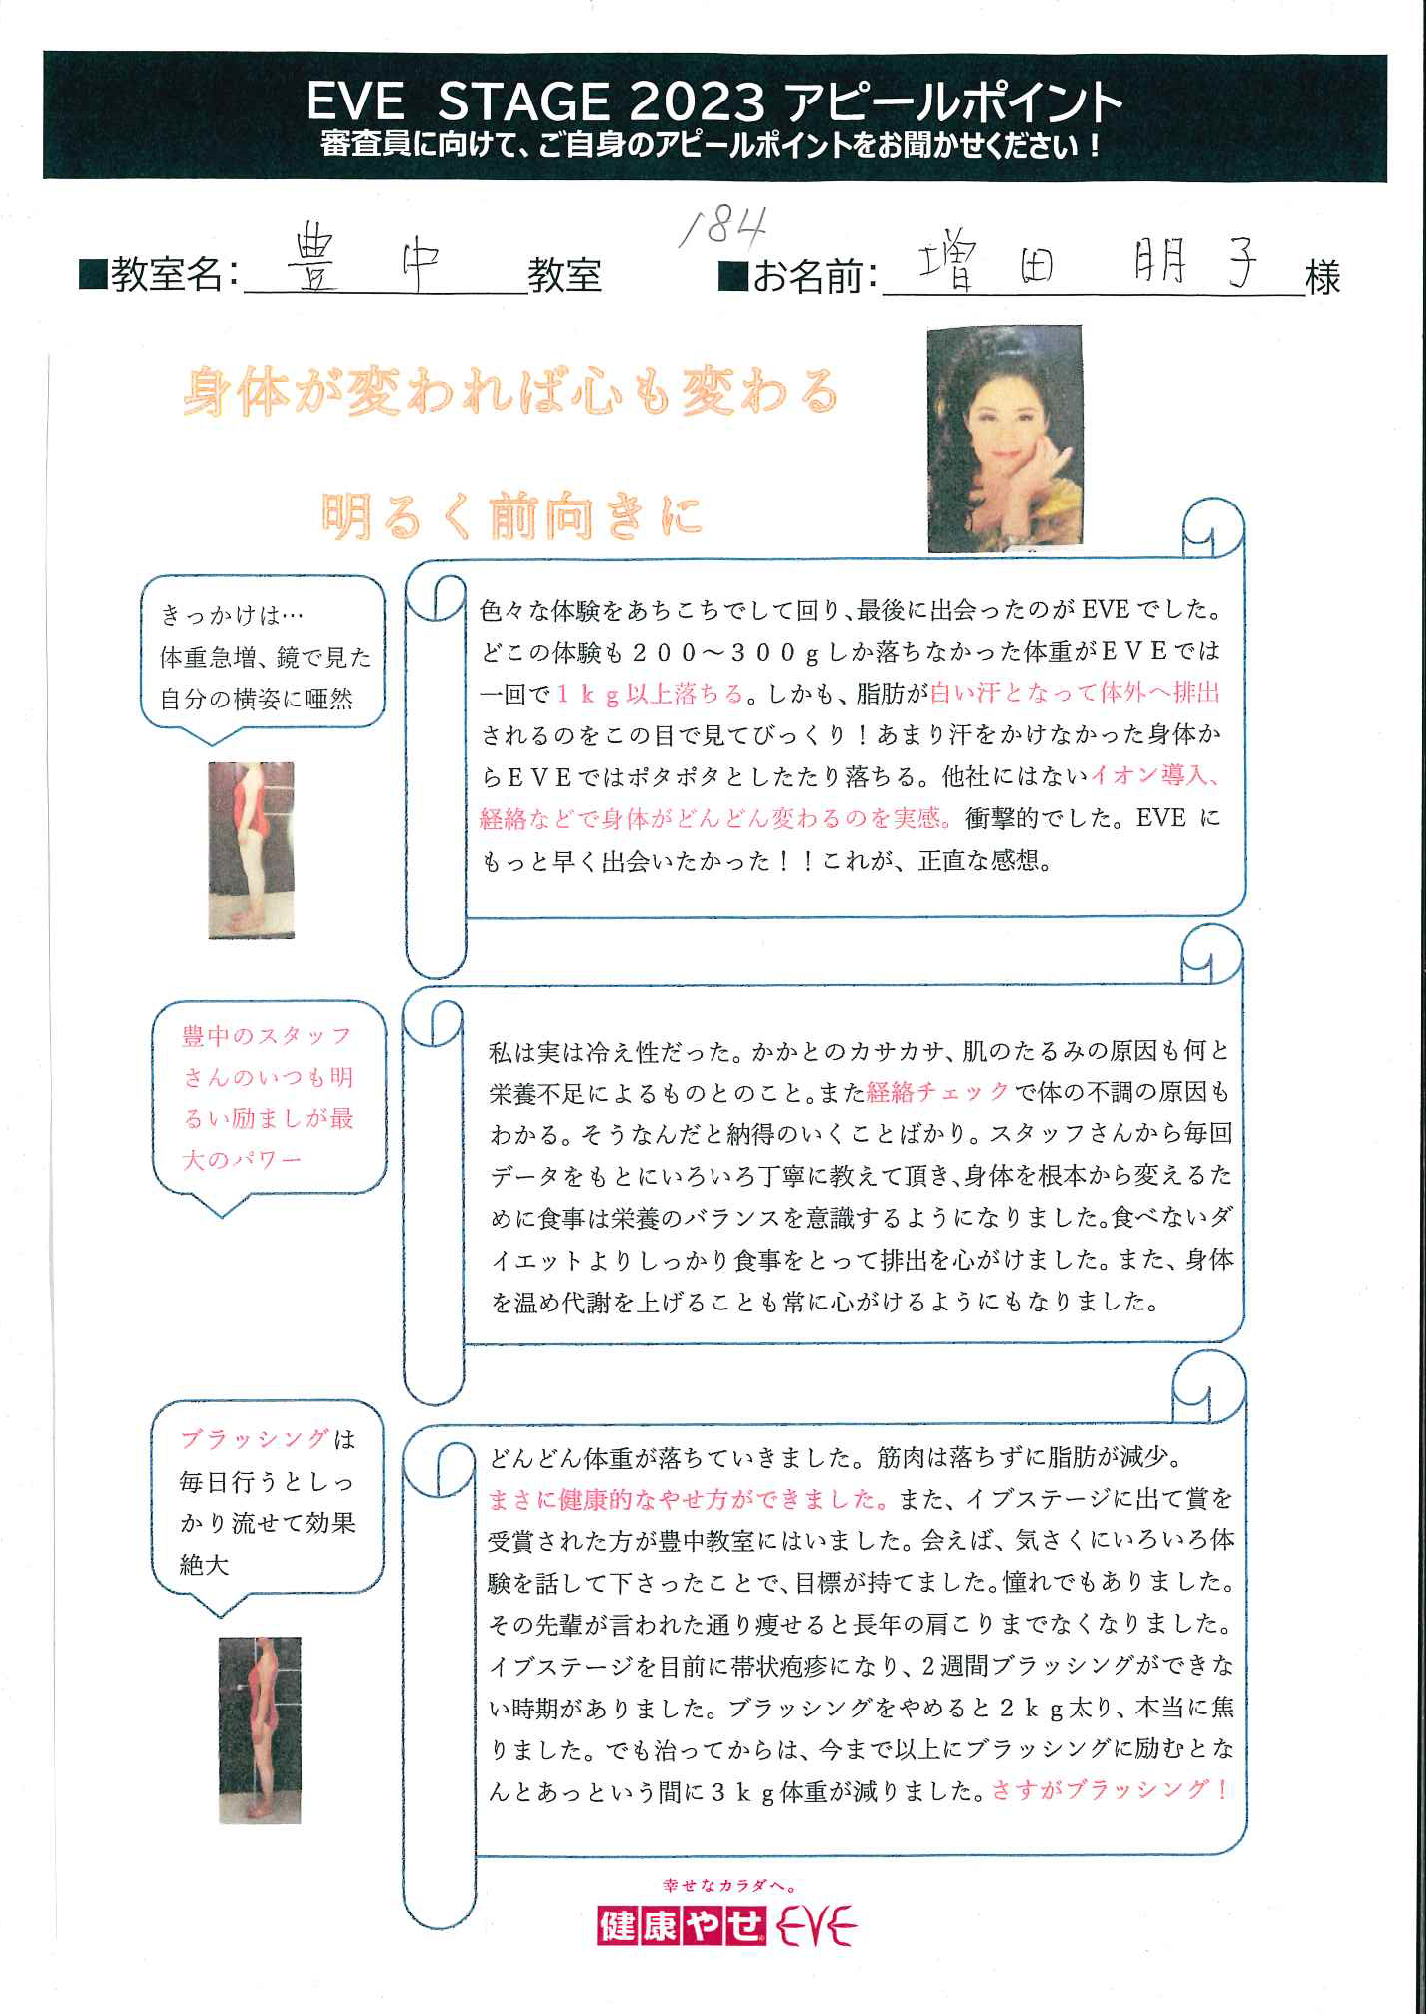 EVE STAGE 2023 アピールポイント
審査員に向けて、ご自身のアピールポイントをお聞かせください！
184
■教室名：豊中教室 ■お名前：増田 朋子様
身体が変われば心も変わる
明るく前向きに
きっかけは…
体重急増、鏡で見た
自分の横姿に唖然
色々な体験をあちこちでして回り、最後に出会ったのがEVEでした。
どこの体験も２００～３００ｇしか落ちなかった体重がＥＶＥでは
一回で１ｋｇ以上落ちる。しかも、脂肪が白い汗となって体外へ排出
されるのをこの目で見てびっくり！あまり汗をかけなかった身体か
らＥＶＥではポタポタとしたたり落ちる。他社にはないイオン導入、
経絡などで身体がどんどん変わるのを実感。衝撃的でした。EVE に
もっと早く出会いたかった！！これが、正直な感想。
豊中のスタッフ
さんのいつも明
るい励ましが最
大のパワー
私は実は冷え性だった。かかとのカサカサ、肌のたるみの原因も何と
栄養不足によるものとのこと。また経絡チェックで体の不調の原因も
わかる。そうなんだと納得のいくことばかり。スタッフさんから毎回
データをもとにいろいろ丁寧に教えて頂き、身体を根本から変えるた
めに食事は栄養のバランスを意識するようになりました。食べないダ
イエットよりしっかり食事をとって排出を心がけました。また、身体
を温め代謝を上げることも常に心がけるようにもなりました。
ブラッシングは
毎日行うとしっ
かり流せて効果
絶大
どんどん体重が落ちていきました。筋肉は落ちずに脂肪が減少。
まさに健康的なやせ方ができました。また、イブステージに出て賞を
受賞された方が豊中教室にはいました。会えば、気さくにいろいろ体
験を話して下さったことで、目標が持てました。憧れでもありました。
その先輩が言われた通り痩せると長年の肩こりまでなくなりました。
イブステージを目前に帯状疱疹になり、2週間ブラッシングができな
い時期がありました。ブラッシングをやめると２ｋｇ太り、本当に焦
りました。でも治ってからは、今まで以上にブラッシングに励むとな
んとあっという間に３ｋｇ体重が減りました。さすがブラッシング！
幸せなカラダへ。
健康やせ EVE